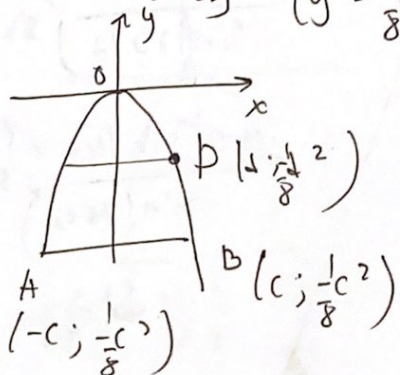 (y =
8
y
0
x
D (d; -1/8 d²)
B (c; -1/8 c²)
A
(-c; -1/8 c²)